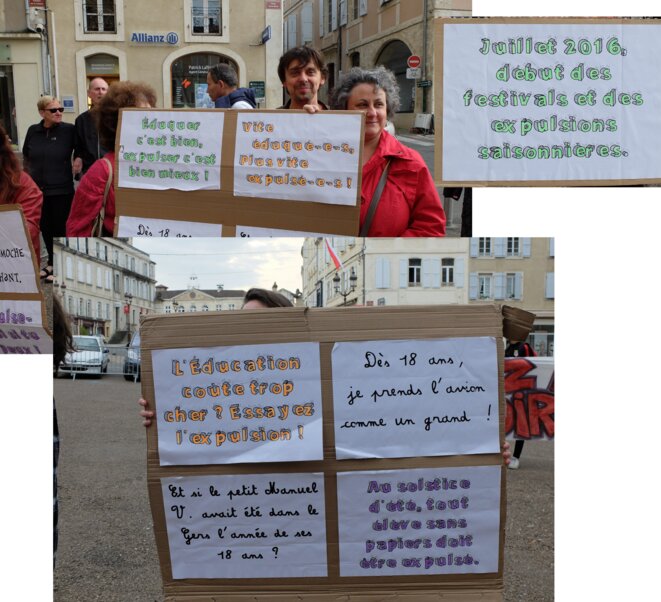 Allianz
Éduquer
c'est bien,
expulser c'est
bien mieux !
Vite
éduqué-e-s,
Plus vite
expulsé-e-s !
Dès 18 ans
Juillet 2016,
début des
festivals et des
expulsions
saisonnières.
MOCHE
HANT.
L'Éducation
coûte trop
cher ? Essayez
l'expulsion !
Dès 18 ans,
je prends l'avion
comme un grand !
Et si le petit Manuel
V. avait été dans le
Gers l'année de ses
18 ans ?
Au solstice
d'été, tout
élève sans
papiers doit
être expulsé.
OIR